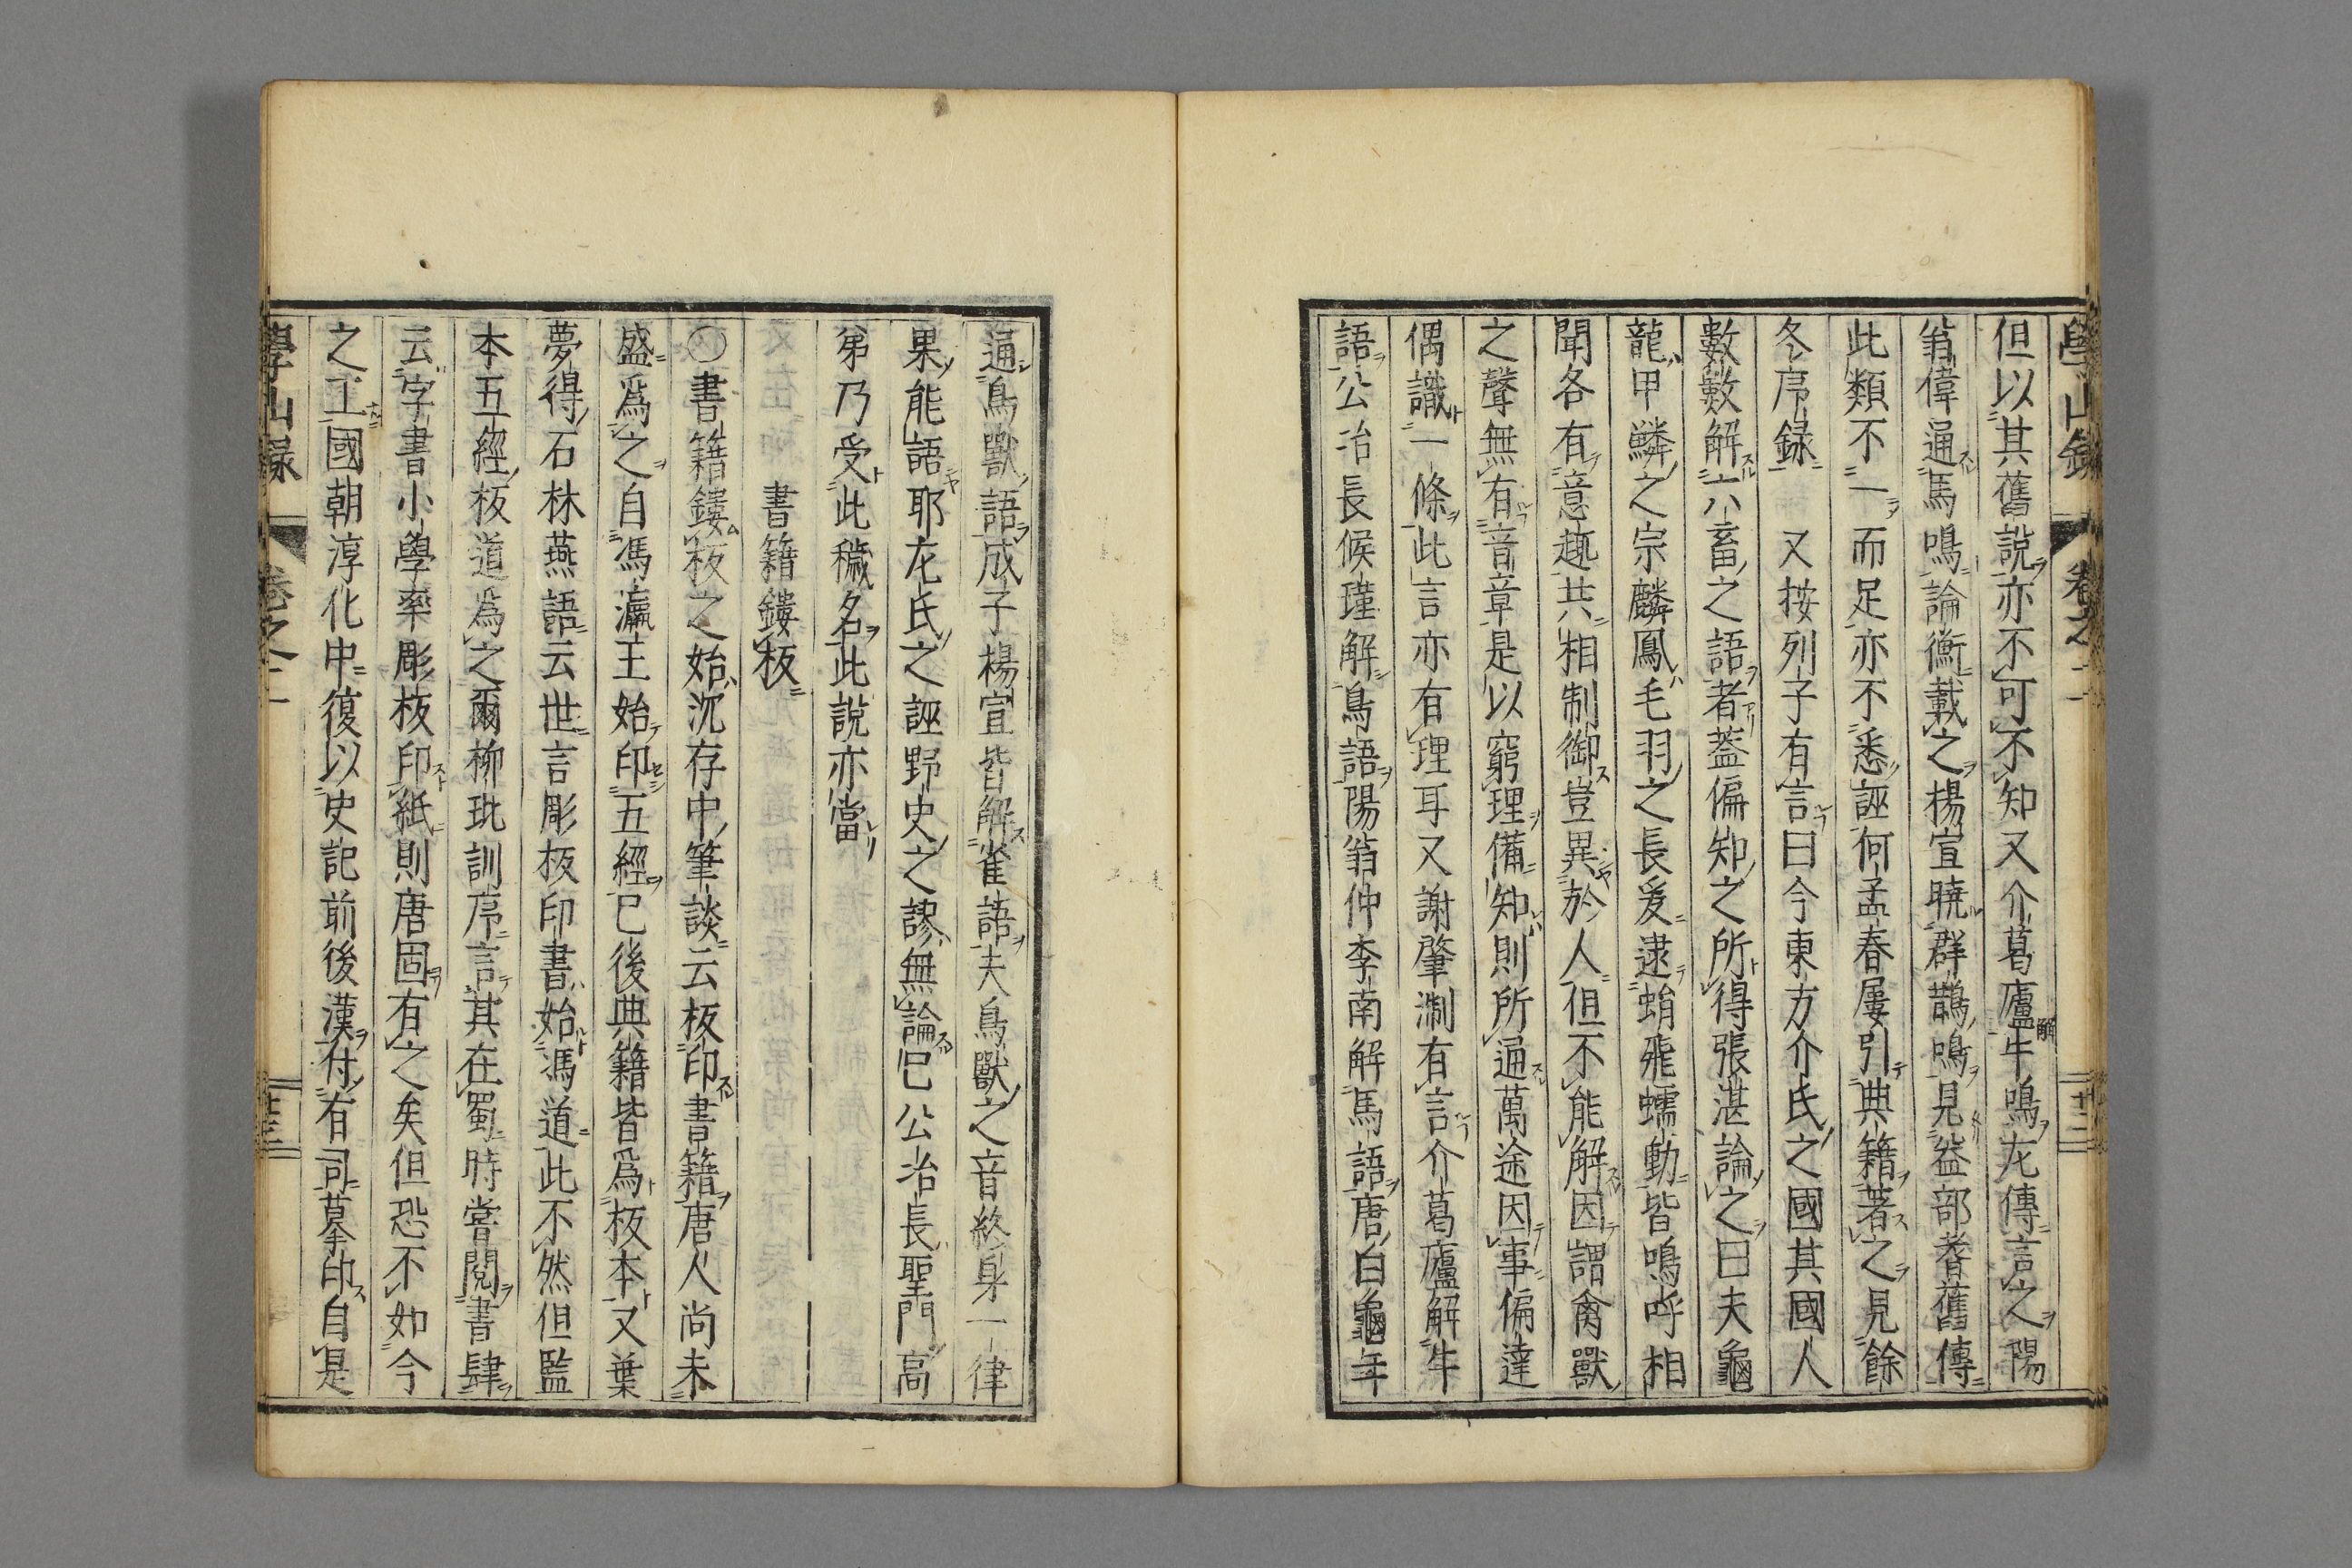 學山錄 卷之二 十二
但以其舊説亦不可不知又介葛廬解牛鳴左傳言之陽
翁偉通馬鳴論衡載之楊宣曉群鵲鳴見益部耆舊傳
此類不一而足亦不悉誣何孟春屢引典籍著之見餘
冬序録 又按列子有言曰今東方介氏之國其國人
數數解六畜之語者蓋偏知之所得張湛論之曰夫龜
龍甲鱗之宗麟鳳毛羽之長爰逮蜎飛蠕動皆鳴呼相
聞各有意趣共相制御豈異於人但不能解因謂禽獸
之聲無有音章是以窮理備知則所通萬途因事偏達
偶識一條此言亦有理耳又謝肇淛有言介葛廬解牛
語公冶長候瑾解鳥語陽翁仲李南解馬語唐白龜年
通鳥獸語成子楊宣皆解雀語夫鳥獸之音終身一律
果能語耶左氏之誣野史之謬無論已公冶長聖門高
弟乃受此穢名此說亦當
書籍鏤板
○書籍鏤板之始沈存中筆談云板印書籍唐人尚未
盛爲之自馮瀛王始印五經已後典籍皆爲板本又葉
夢得石林燕語云世言彫板印書始馮道此不然但監
本五經板道爲之爾柳玭訓序言其在蜀時嘗閲書肆
云字書小學率彫板印紙則唐固有之矣但恐不如今
之工國朝淳化中復以史記前後漢付有司摹印自是
學山録 卷之二 十三